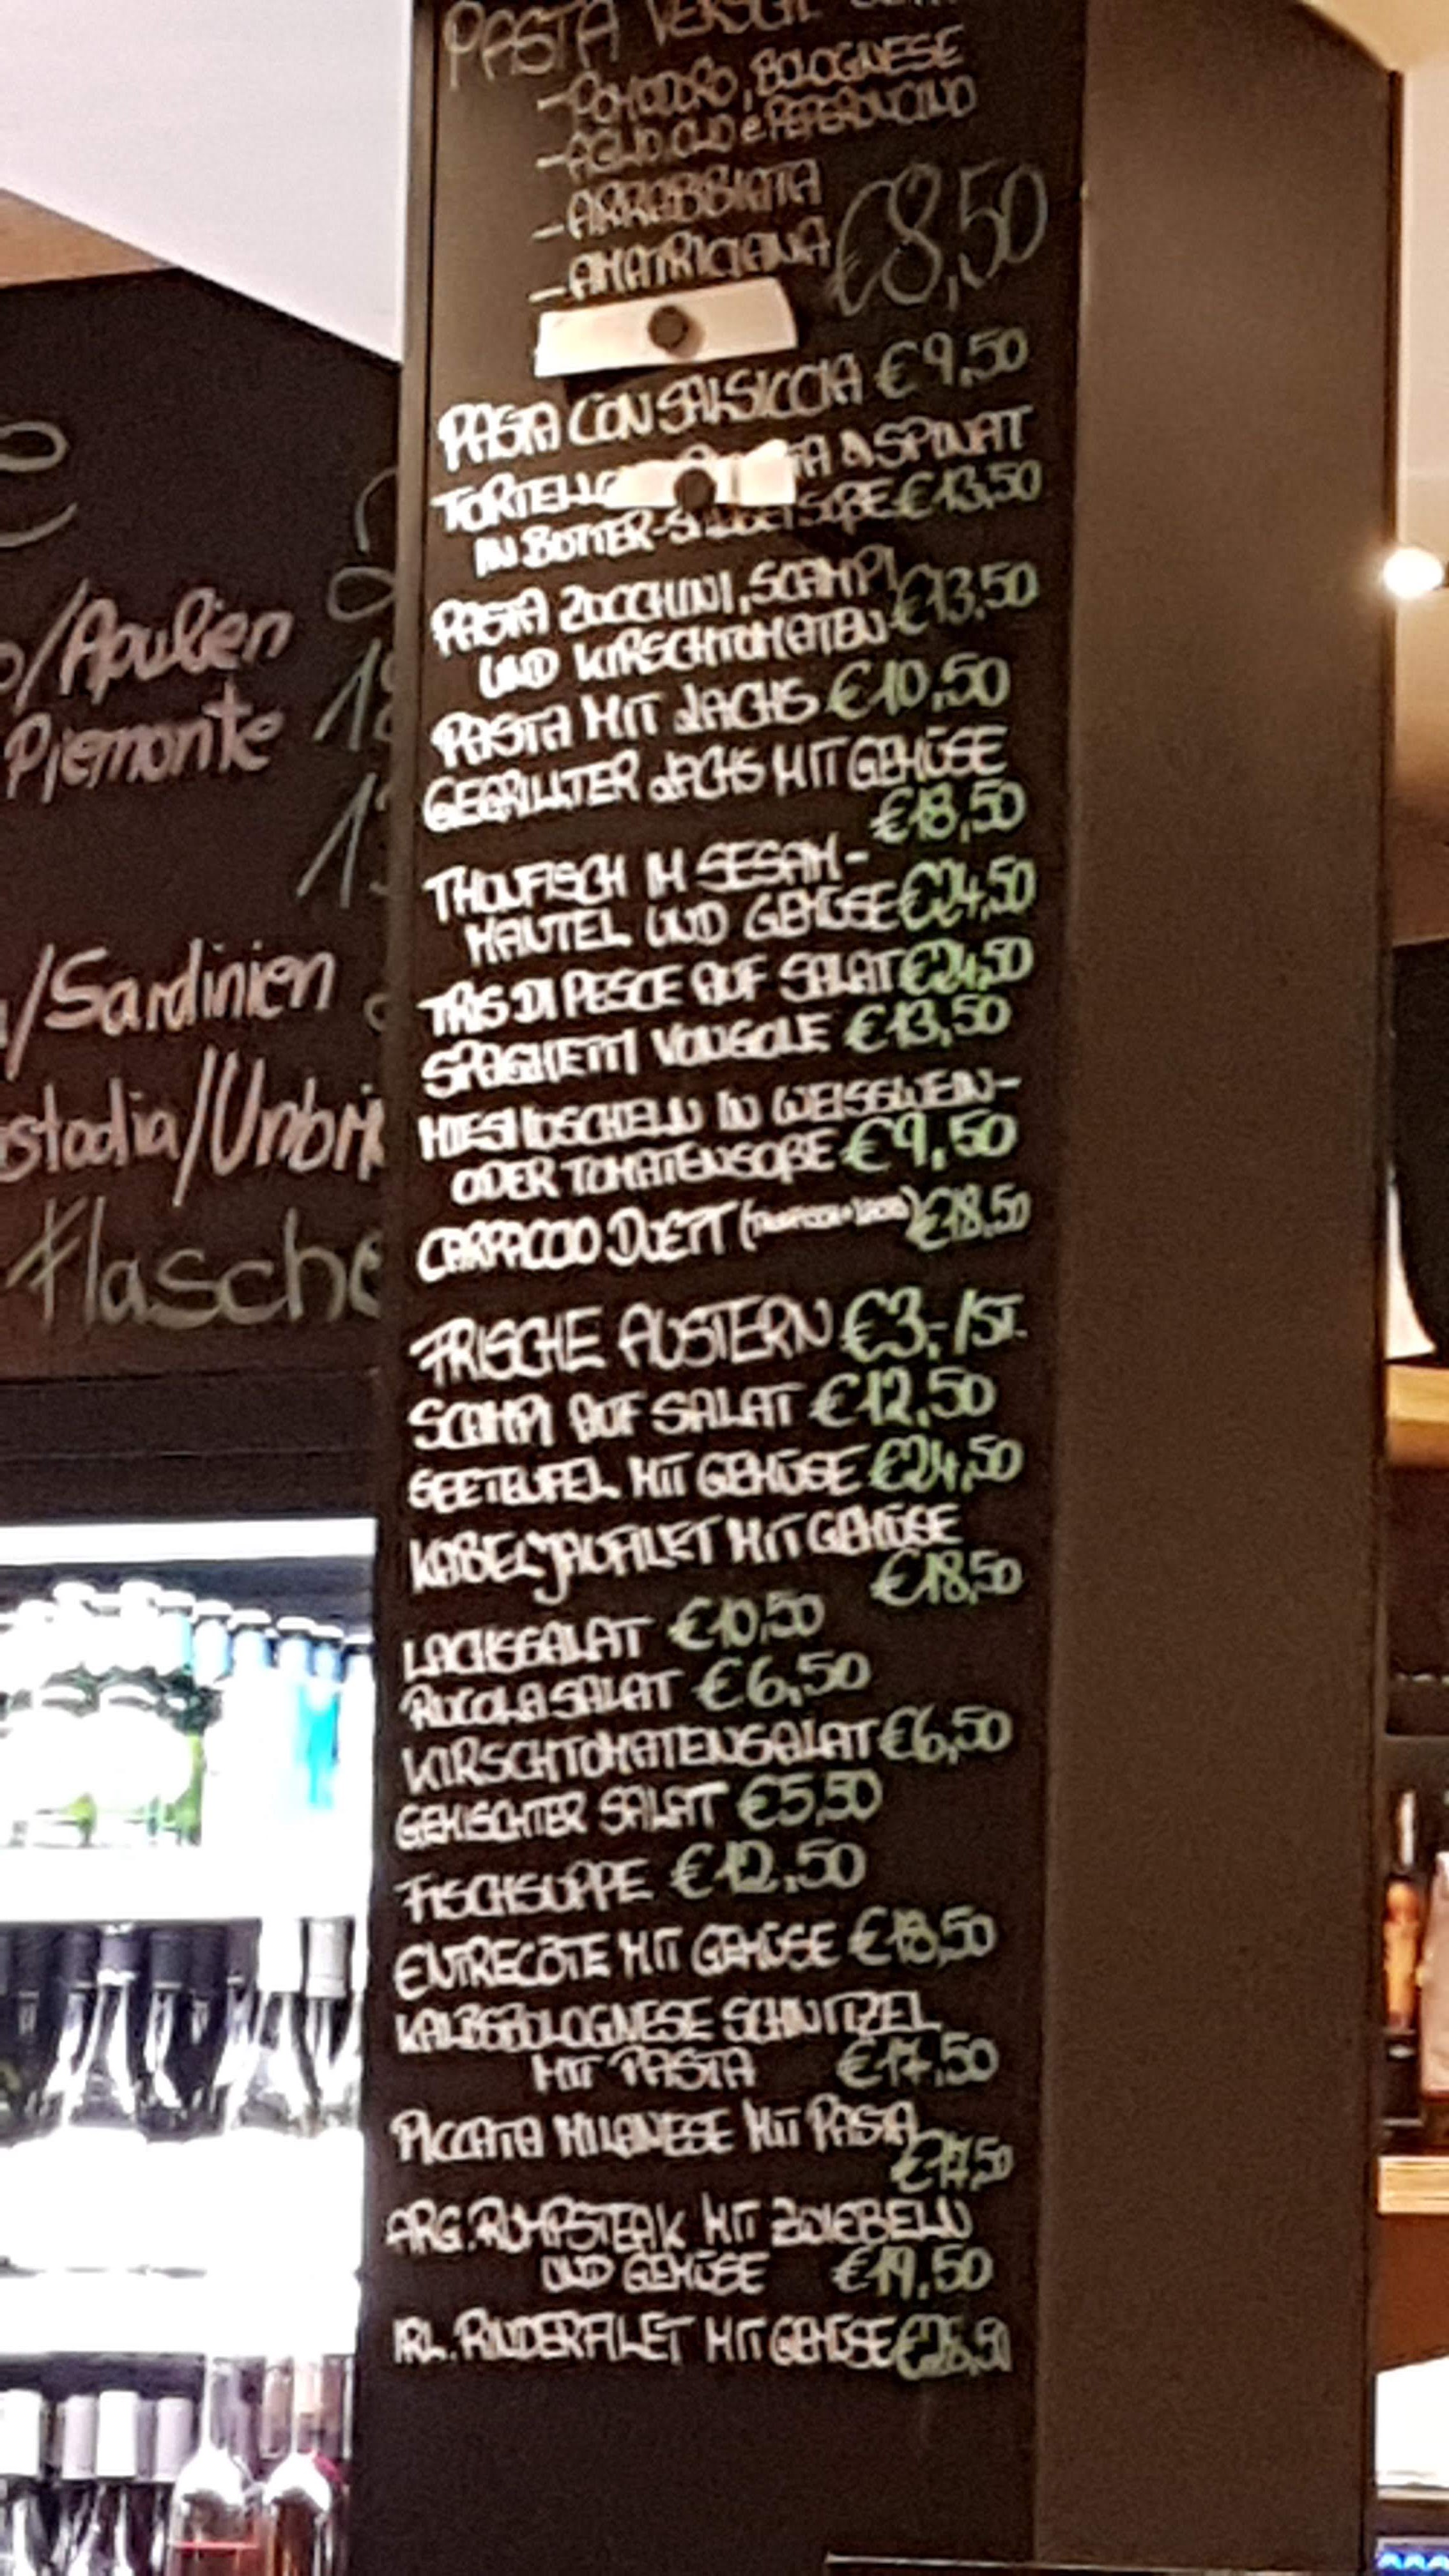 PASTA VERSCH.
- POMODORO, BOLOGNESE
- AGLIO OLIO e PEPERONCINO
- ARRABBIATA
- AMATRICIANA €8,50
PASTA CON SALSICCIA €9,50
& SPINAT
IN BUTTER- €13,50
PASTA ZUCCHINI, SCAMPI
UND KIRSCHTOMATEN €13,50
PASTA MIT LACHS €10,50
GEGRILLTER LACHS MIT GEMÜSE
€18,50
THUNFISCH IM SESAM-
MANTEL UND GEMÜSE €24,50
TRIS DI PESCE AUF SALAT €24,50
SPAGHETTI VONGOLE €13,50
MIESMUSCHELN IN WEISSWEIN-
ODER TOMATENSOßE €9,50
CARPACCIO DUETT €18,50
FRISCHE AUSTERN €3,-/ST.
SCAMPI AUF SALAT €12,50
SEETEUFEL MIT GEMÜSE €24,50
KABELJAUFILET MIT GEMÜSE
€18,50
LACHSSALAT €10,50
RUCOLASALAT €6,50
KIRSCHTOMATENSALAT €6,50
GEMISCHTER SALAT €5,50
FISCHSUPPE €12,50
ENTRECÔTE MIT GEMÜSE €18,50
KALBSBOLOGNESE SCHNITZEL
MIT PASTA €17,50
PICCATA MILANESE MIT PASTA
€17,50
ARG. RUMPSTEAK MIT ZWIEBELN
UND GEMÜSE €19,50
IRL. RINDERFILET MIT GEMÜSE
/Apulien
Piemonte
/Sardinien
Flasche